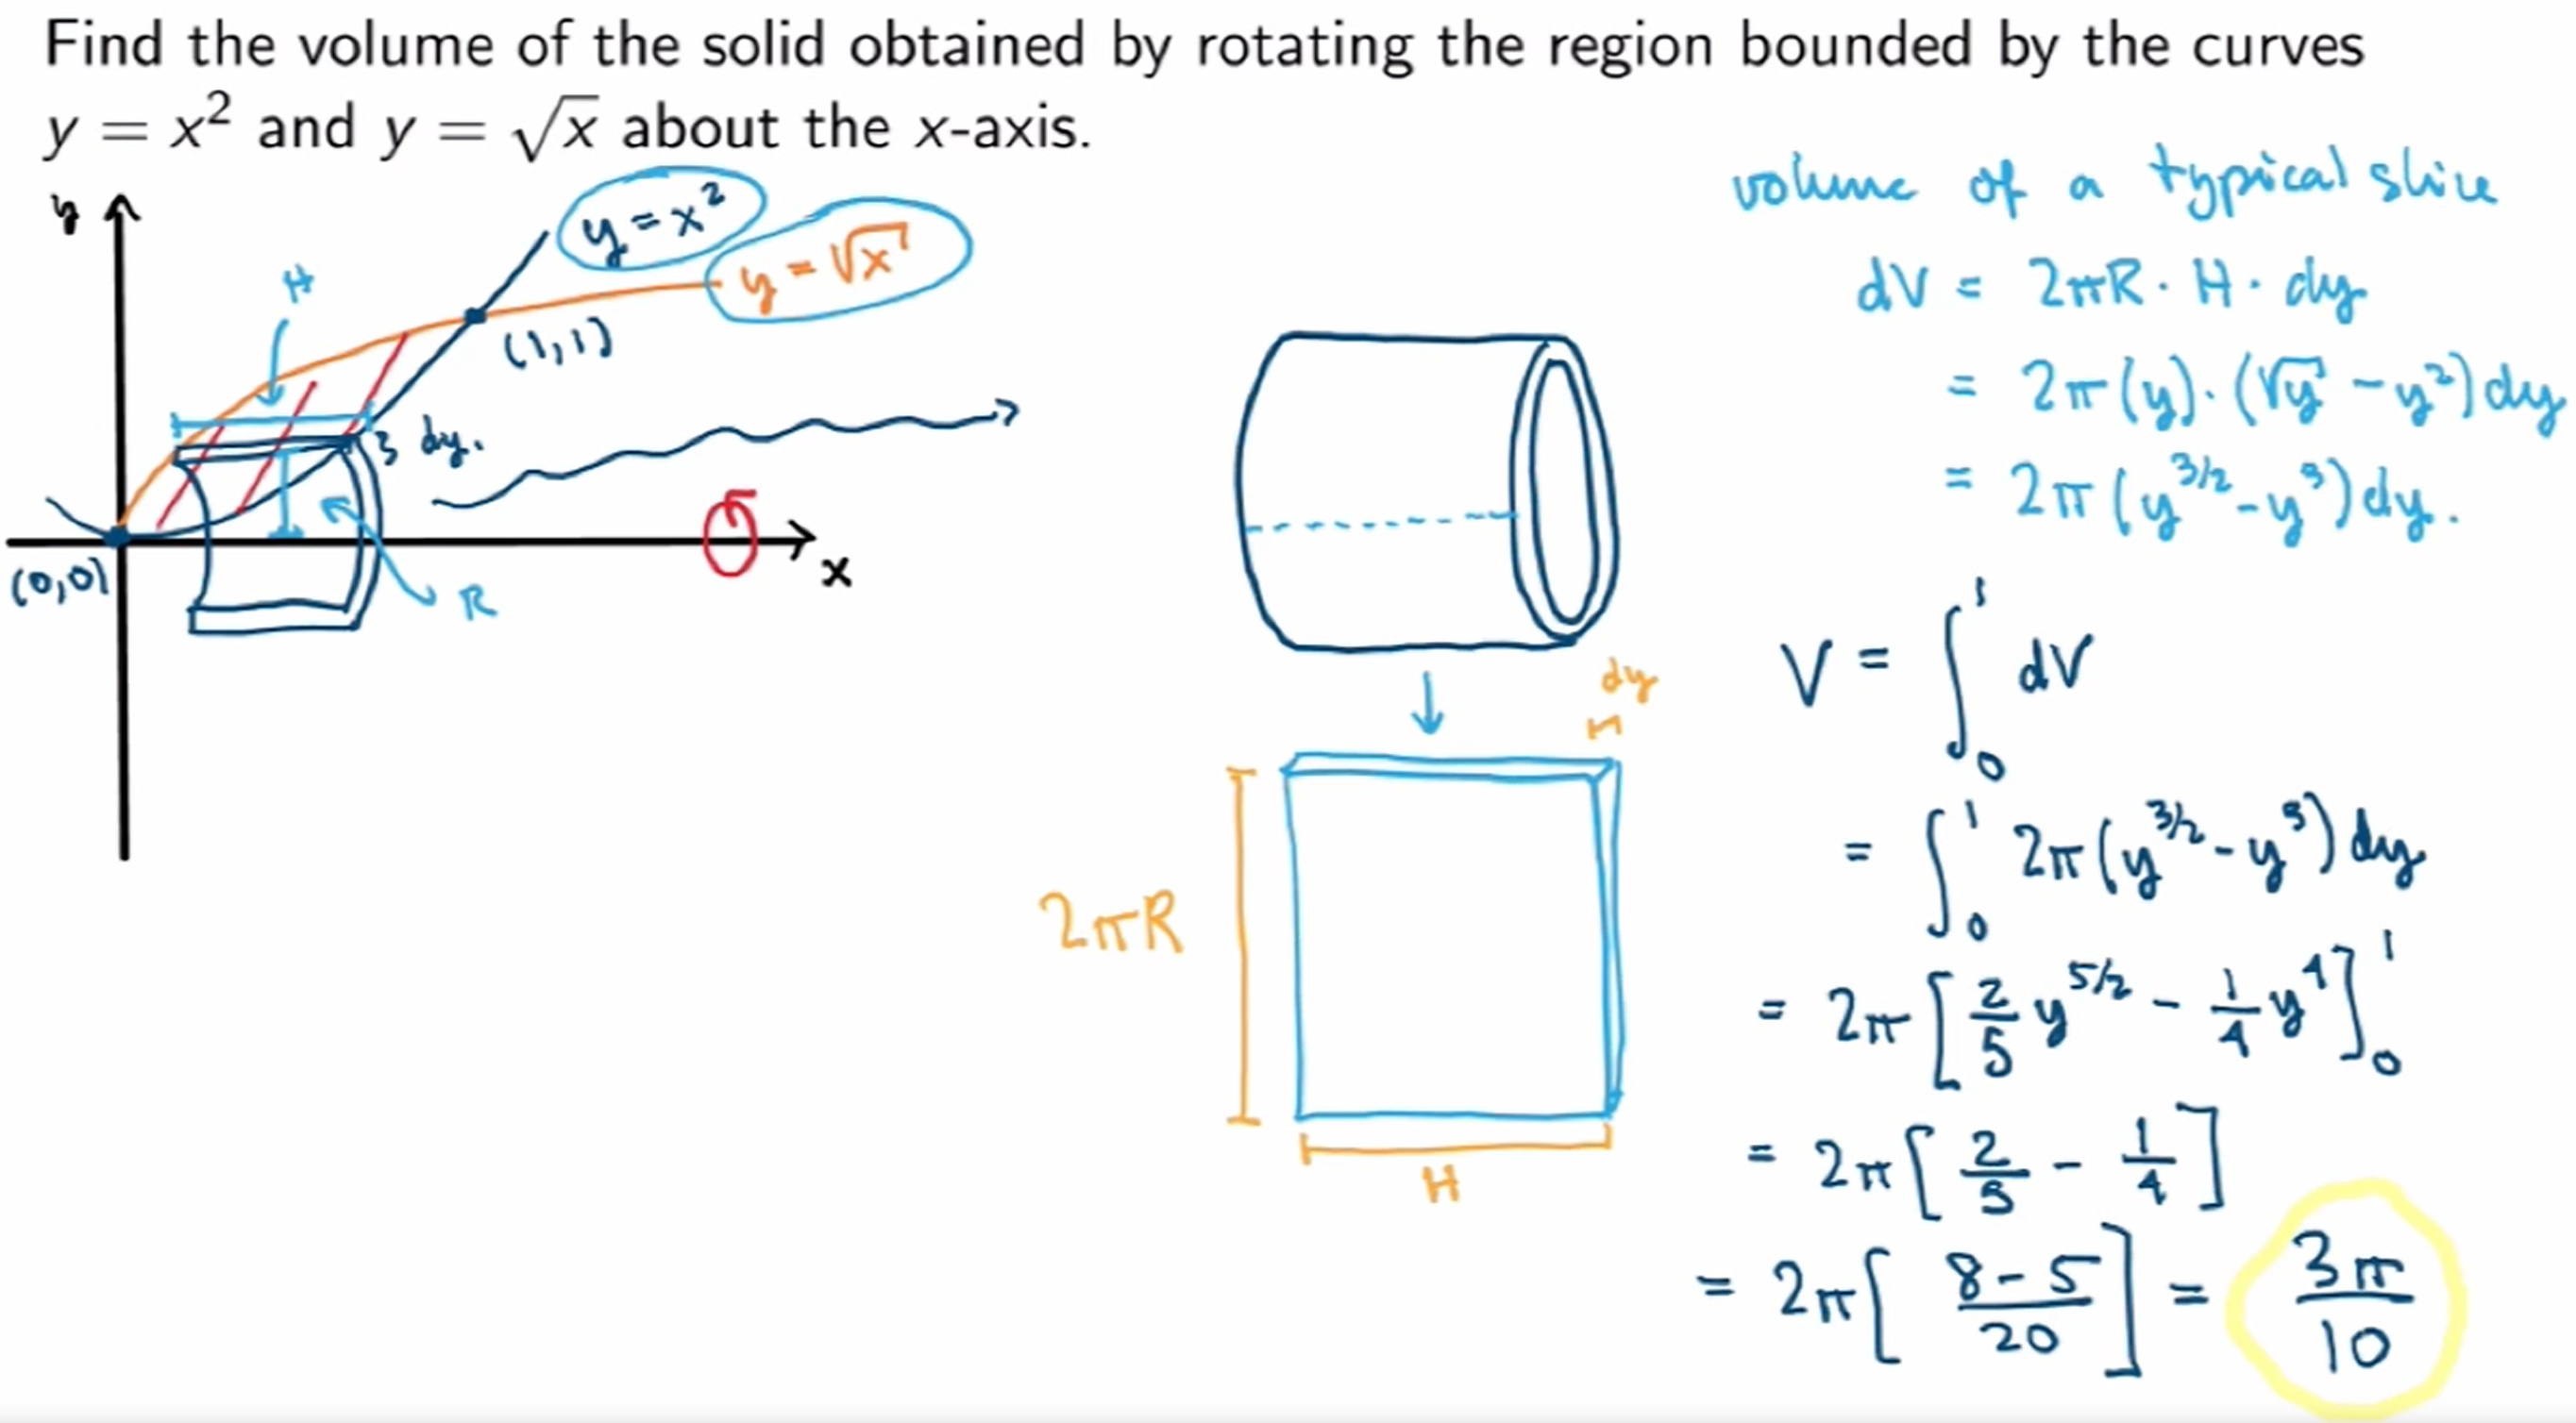 Find the volume of the solid obtained by rotating the region bounded by the curves
y = x² and y = √x about the x-axis.
y
y = x²
y = √x
H
(1,1)
dy.
(0,0)
R
x
dy
2πR
H
volume of a typical slice
dV = 2πR · H · dy
= 2π(y) · (√y − y²)dy
= 2π(y^{3/2} − y³)dy.
V = ∫₀¹ dV
= ∫₀¹ 2π(y^{3/2} − y³)dy
= 2π[2/5 y^{5/2} − 1/4 y⁴]₀¹
= 2π[2/5 − 1/4]
= 2π[(8 − 5)/20] = 3π/10